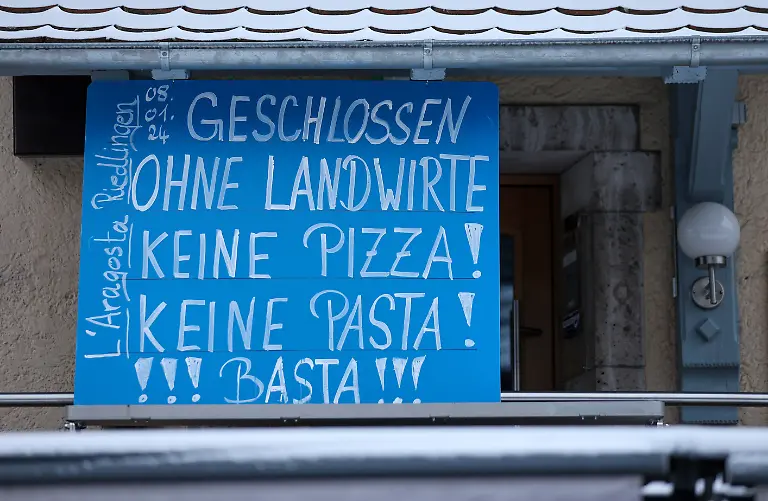 L'Aragosta Riedlingen
08.
01.
24
GESCHLOSSEN
OHNE LANDWIRTE
KEINE PIZZA!
KEINE PASTA!
!!! BASTA!!!